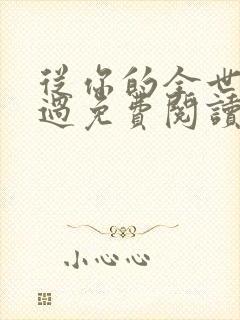 從你的全世
過免費閱讀
小心心